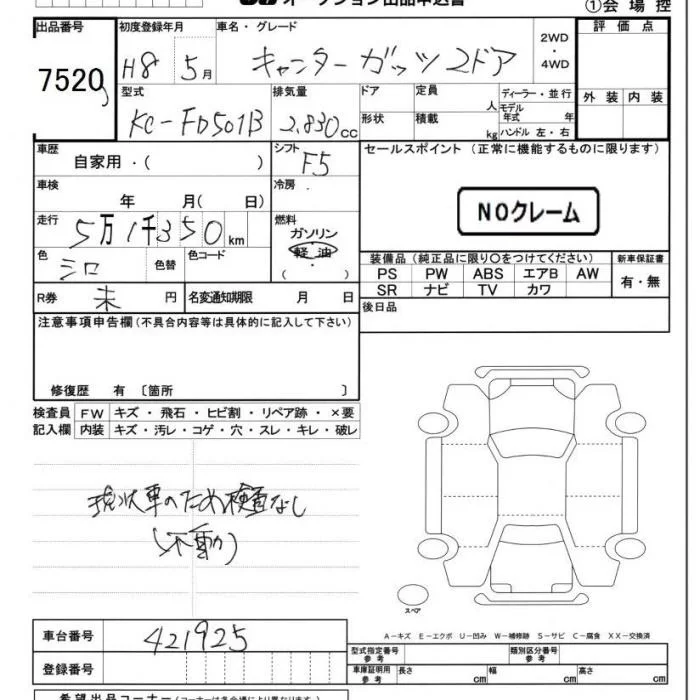 オークション出品申込書
①会場控
出品番号 初度登録年月 車名・グレード 2WD・4WD 評価点
7520 H8 5月 キャンター ガッツ 2ドア
型式 排気量 ドア 定員 人 ディーラー・並行 外装 内装
モデル年式 年
KC-FD501B 2,830cc 形状 積載 kg ハンドル 左・右
車歴 自家用・( ) シフト F5 セールスポイント (正常に機能するものに限ります)
車検 年 月( 日) 冷房
NOクレーム
走行 5万1千350km 燃料 ガソリン
軽油
( )
色 シロ 色替 色コード
装備品 (純正品に限り〇をつけてください) 新車保証書
PS PW ABS エアB AW 有・無
SR ナビ TV カワ
R券 未 円 名変通知期限 月 日 後日品
注意事項申告欄(不具合内容等は具体的に記入して下さい)
修復歴 有 〔箇所 〕
検査員 FW キズ・飛石・ヒビ割・リペア跡・×要
記入欄 内装 キズ・汚レ・コゲ・穴・スレ・キレ・破レ
現状車のため検査なし
(不動)
スペア
A-キズ E-エクボ U-凹み W-補修跡 S-サビ C-腐食 XX-交換済
車台番号 421925
型式指定番号 参考 類別区分番号 参考
登録番号
車庫証明用 参考 長さ cm 幅 cm 高さ cm
希望出品コーナー(コーナーは各会場により異なります)